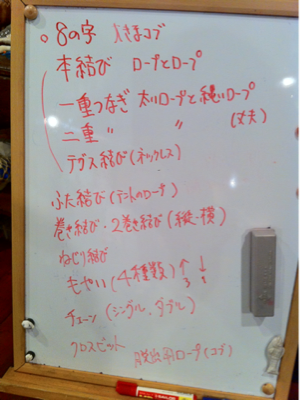 。8の字 大きなコブ
本結び ロープとロープ
一重つなぎ 太いロープと細いロープ
二重 〃 〃 (丈夫)
テグス結び(ネックレス)
ふた結び(テントのロープ)
巻き結び・2巻き結び(縦・横)
ねじり結び
もやい(4種類) ↑3 ↓1
チェーン(シングル、ダブル)
クロスビット
脱出用ロープ(コブ)